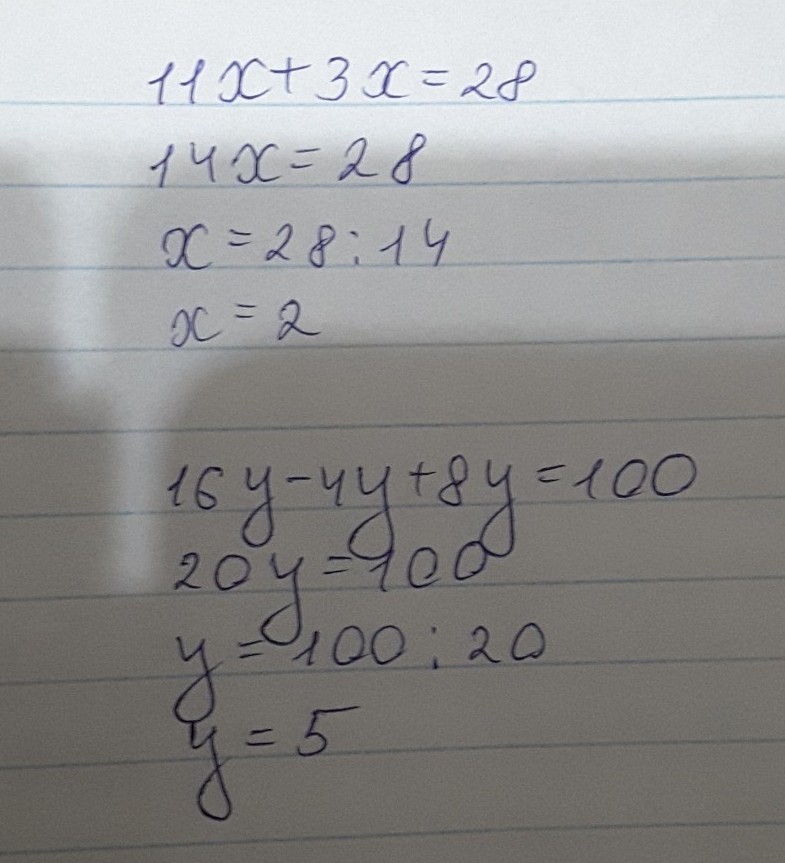 11x+3x=28
14x=28
x=28:14
x=2
16y-4y+8y=100
20y=100
y=100:20
y=5